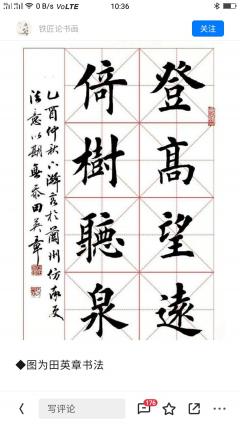 0 B/s VoLTE 10:36
铁匠论书画
关注
登髙望遠
倚樹聽泉
乙酉仲秋下澣書於蘭州仿
法意以期無忝田英章
◆图为田英章书法
写评论
176